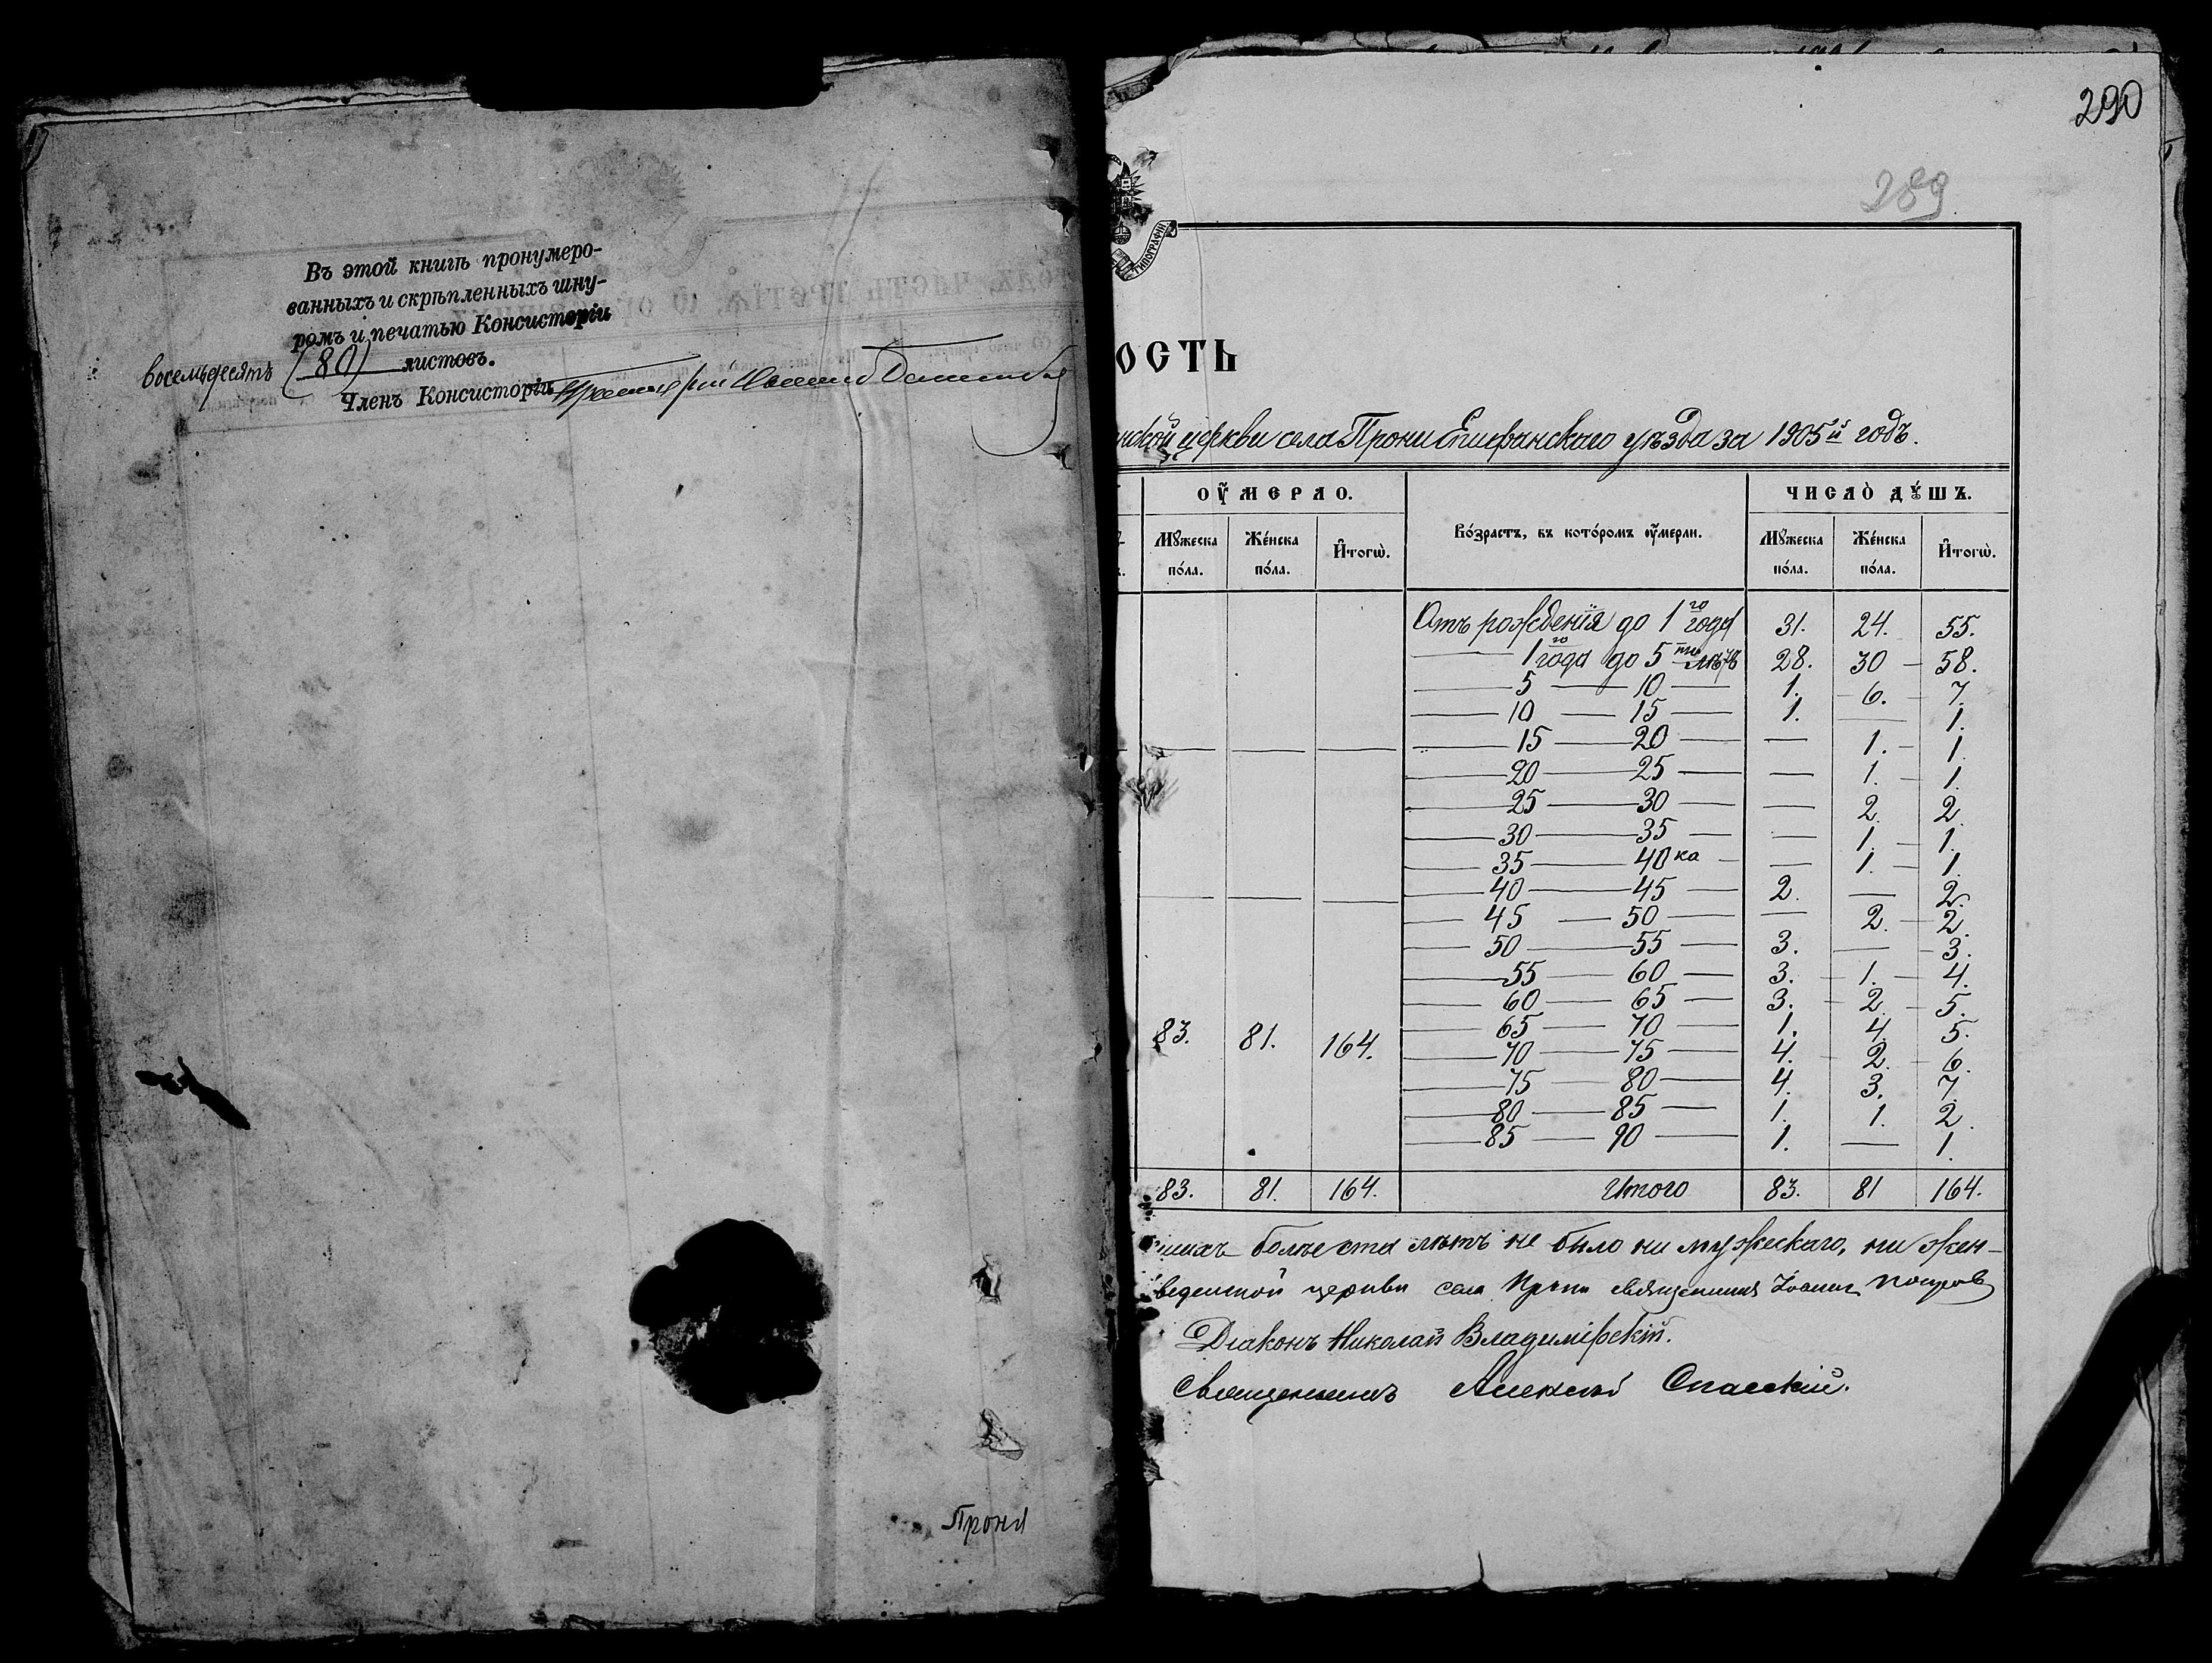 290
289
Въ этой книгѣ пронумеро-
ванныхъ и скрѣпленныхъ шну-
ромъ и печатью Консисторіи
восемьдесятъ (80) листовъ.
Членъ Консисторіи
Проня
ТИПОГРАФІИ
ОСТЬ
нской церкви села Прони Епифанскаго уѣзда за 1905й годъ.
ОУМЕРЛО. ЧИСЛО ДУШЪ.
Мужеска пола. Женска пола. Итогѡ. Возрастъ, въ которомъ оумерли. Мужеска пола. Женска пола. Итогѡ.
Отъ рожденія до 1го года 31. 24. 55.
— 1го года до 5ти лѣтъ 28. 30 — 58.
— 5 — 10 — 1. 6. 7.
— 10 — 15 — 1. — 1.
— 15 — 20 — — 1. — 1.
— 20 — 25 — — 1. — 1.
— 25 — 30 — — 2. 2.
— 30 — 35 — — 1. — 1.
— 35 — 40ка — — 1. — 1.
— 40 — 45 — 2. — 2.
— 45 — 50 — — 2. — 2.
— 50 — 55 — 3. — 3.
— 55 — 60 — 3. — 1. — 4.
— 60 — 65 — 3. — 2. — 5.
83. 81. 164. — 65 — 70 — 1. 4. 5.
— 70 — 75 — 4. — 2. — 6.
— 75 — 80 — 4. 3. 7.
— 80 — 85 — 1. 1. 2.
— 85 — 90 — 1. — 1.
83. 81. 164. Итого 83. 81 164.
шихъ болѣе ста лѣтъ не было ни мужескаго, ни жен-
веденской церкви села Прони священникъ Іоаннъ
Діаконъ Николай Владимірскій.
Священникъ Алексѣй Спасскій.